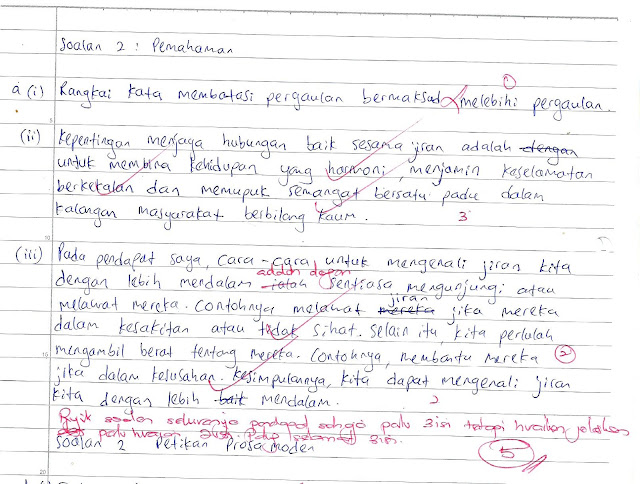 Soalan 2 : Pemahaman
①
a (i) Rangkai kata membatasi pergaulan bermaksud melebihi pergaulan.
(ii) Kepentingan menjaga hubungan baik sesama jiran adalah dengan
untuk membina kehidupan yang harmoni, menjamin keselamatan
berkekalan dan memupuk semangat bersatu padu dalam
kalangan masyarakat berbilang kaum. 3
(iii) Pada pendapat saya, cara-cara untuk mengenali jiran kita
adalah dengan
dengan lebih mendalam ialah sentiasa mengunjungi atau
jiran
melawat mereka. Contohnya melawat mereka jika mereka
dalam kesakitan atau tidak sihat. Selain itu, kita perlulah
mengambil berat tentang mereka. Contohnya, membantu mereka ②
jika dalam kesusahan. Kesimpulannya, kita dapat mengenali jiran
kita dengan lebih baik mendalam.
soalan sekiranya pendapat perlu 3 isi tetapi huraian
perlu huraian 3 isi.
Soalan 2 Petikan Prosa Moden
5